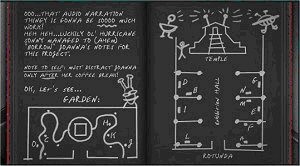 OOO...THAT AUDIO NARRATION
THINGY IS GONNA BE SOOOO MUCH
WORK!
HEH HEH...LUCKILY OL' HURRICANE
SONNY MANAGED TO (AHEM)
"BORROW" JOANNA'S NOTES FOR
THIS PROJECT.
NOTE TO SELF: MUST DISTRACT JOANNA
ONLY AFTER HER COFFEE BREAK!
OK, LET'S SEE...
GARDEN:
TEMPLE
GALLERY HALL
ROTUNDA